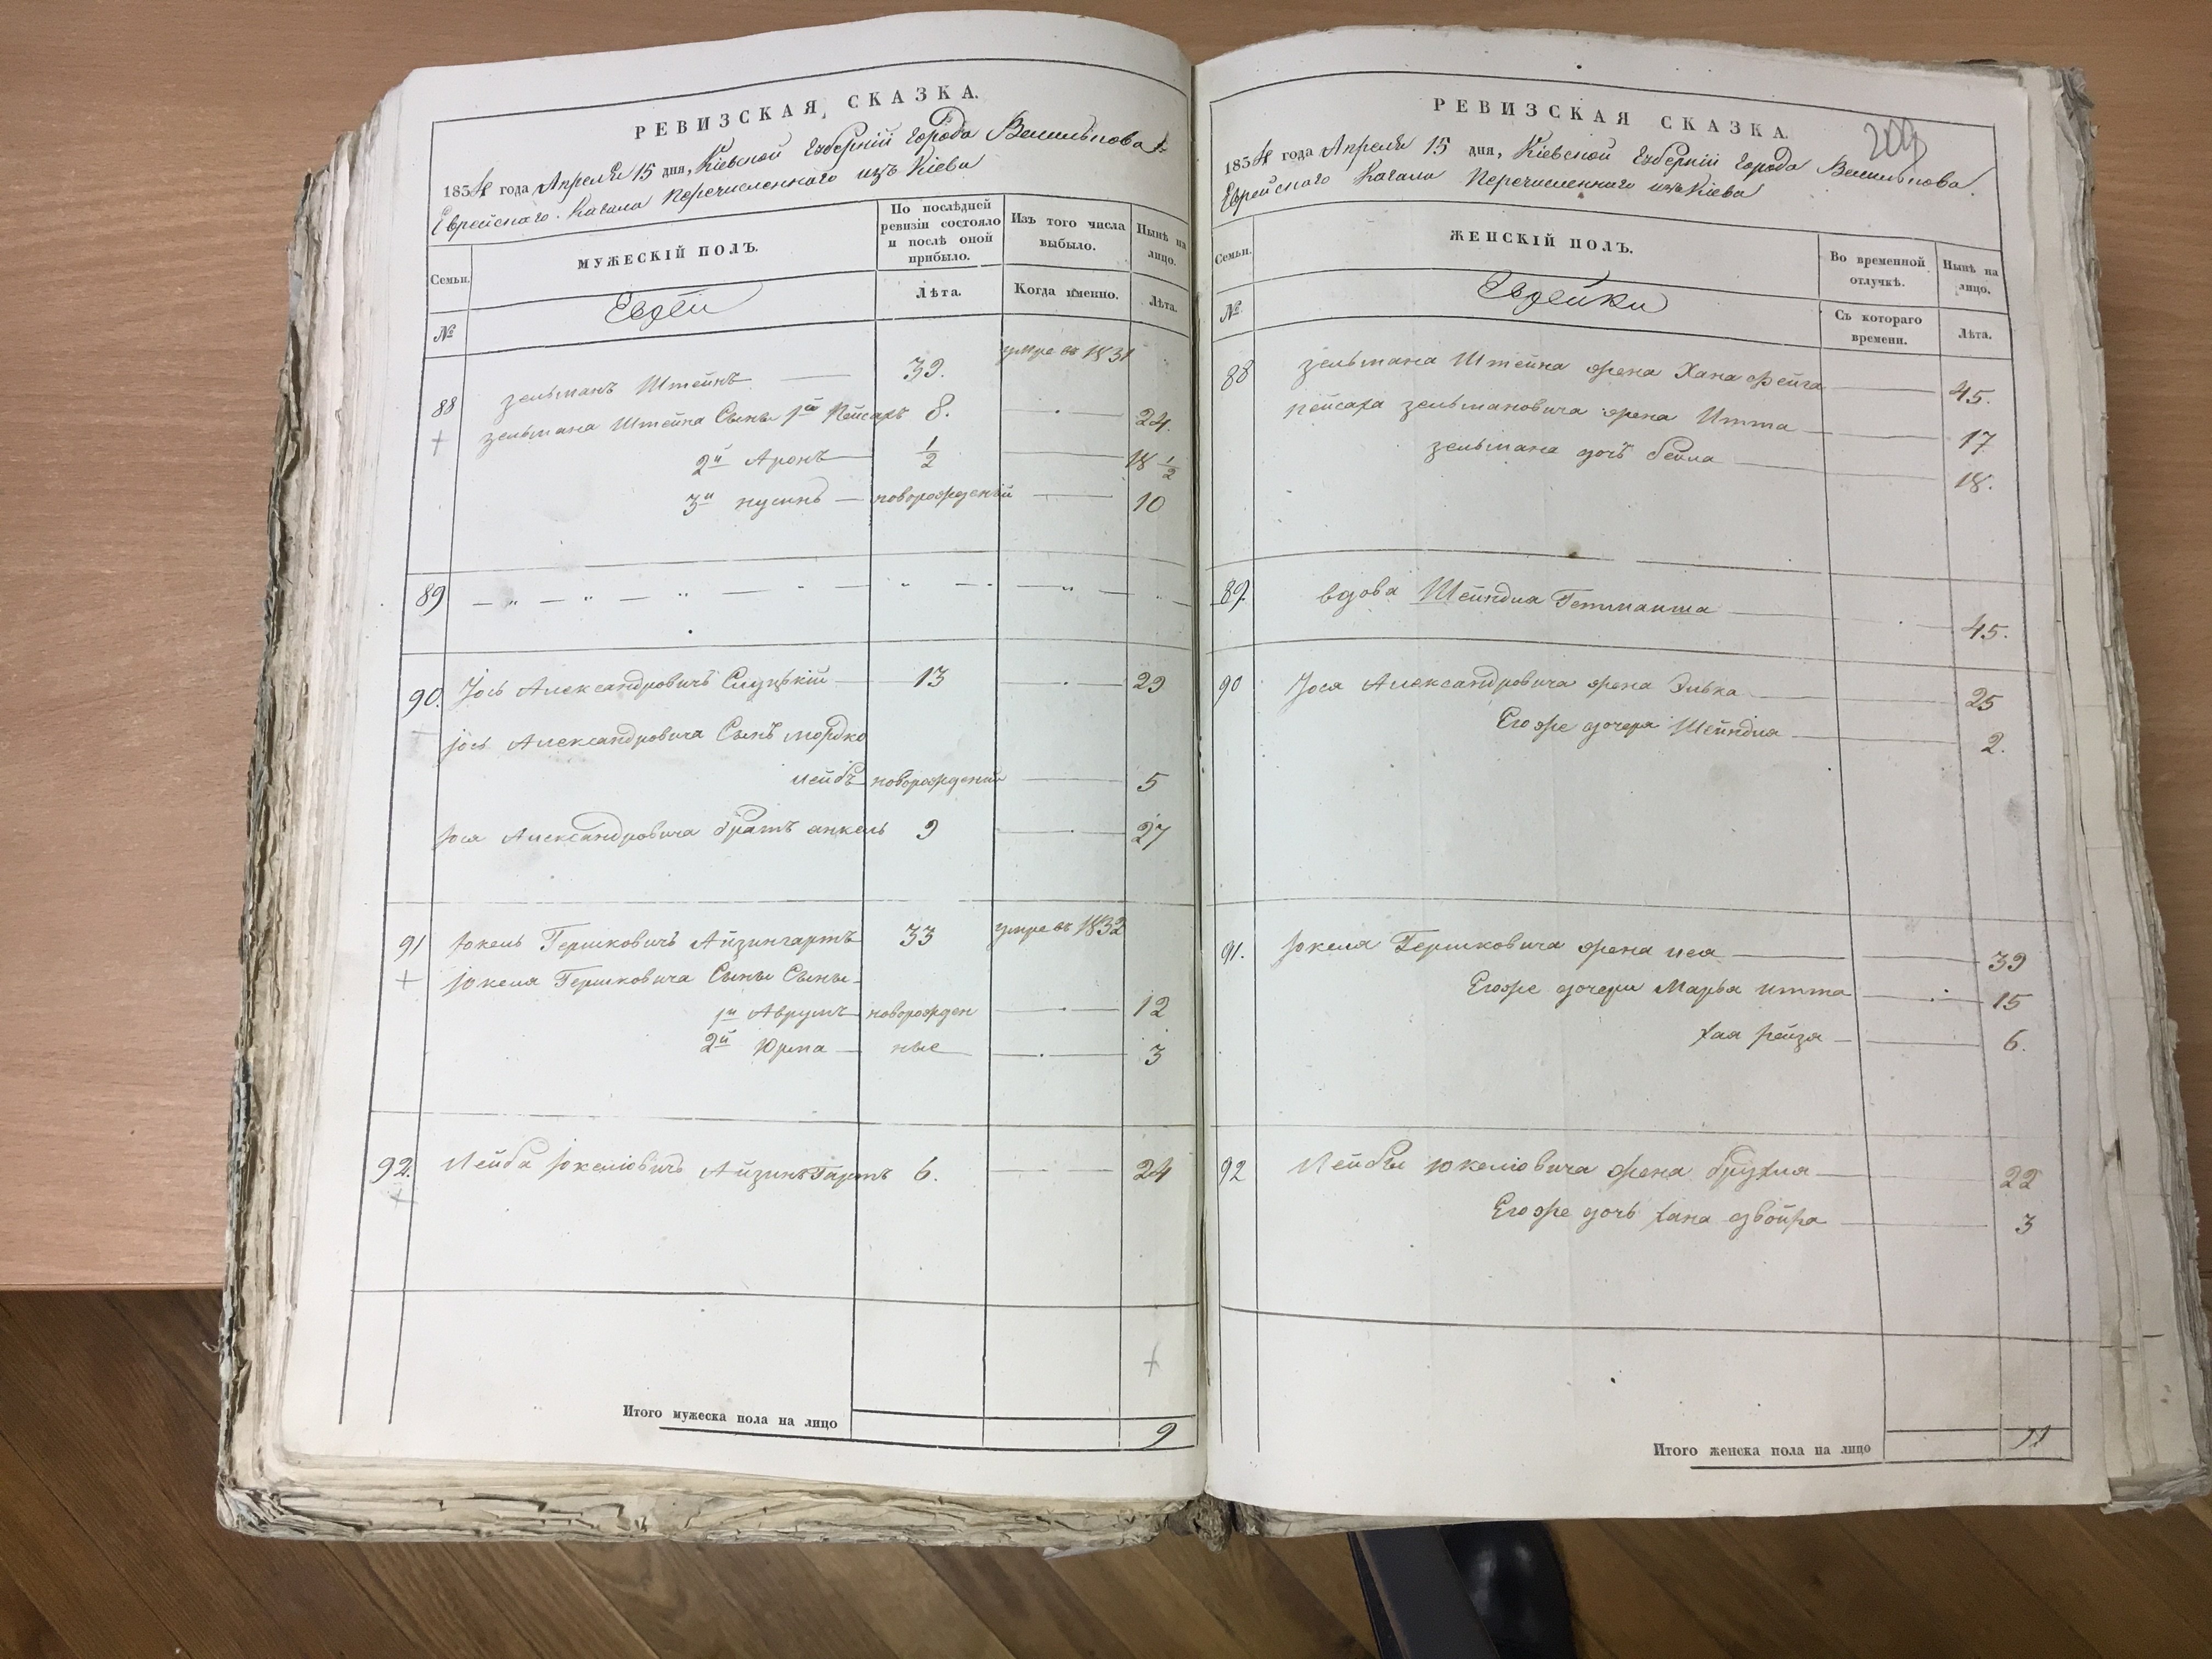 РЕВИЗСКАЯ СКАЗКА.
1834 года Апреля 15 дня, Кіевской Губерніи Города Василькова
Еврейскаго Кагала Перечисленнаго изъ Кіева
Семьи.
МУЖЕСКІЙ ПОЛЪ.
По послѣдней ревизіи состояло и послѣ оной прибыло.
Изъ того числа выбыло.
Нынѣ на лицо.
№
Евреи
Лѣта.
Когда именно.
Лѣта.
88 зельманъ Штейнъ 39. умре въ 1831
зельмана Штейна Сыны 1й Пейсахъ 8. 24.
2й Аронъ ½ 18 ½
3й нусинъ новорожденый 10
89
90. Іось Александровичъ Слуцькій 13 29
іось Александровича Сынъ мордко
лейбъ новорожденый 5
Іося Александровича братъ анкель 9 27
91 Іокель Гершковичъ Айзингартъ 33 умре въ 1832
Іокеля Гершковича Сыны Сыны
1й Аврумъ новорожден 12
2й Юрма ные 3
92. Лейба Іокеліовичъ Айзинъгартъ 6. 24
Итого мужеска пола на лицо 9
РЕВИЗСКАЯ СКАЗКА.
1834 года Апреля 15 дня, Кіевской Губерніи Города Василькова.
Еврейскаго Кагала Перечисленнаго изъ Кіева
Семьи.
ЖЕНСКІЙ ПОЛЪ.
Во временной отлучкѣ.
Нынѣ на лицо.
№
Еврейки
Съ котораго времени.
Лѣта.
88 зельмана Штейна жена Хана Фейга 45.
Пейсаха зельмановича жена Итта 17
зельмана дочь бейла 18.
89. вдова Шейндла Гетманша 45.
90 Іося Александровича жена Элька 25
Егоже дочера Шейндла 2.
91. Іокеля Гершковича жена лея 39
Егоже дочери Марья итта 15
хая рейзя 6.
92 Лейбы Іокеліовича жена брухля 22
Егоже дочь хана двойра 3
Итого женска пола на лицо 11